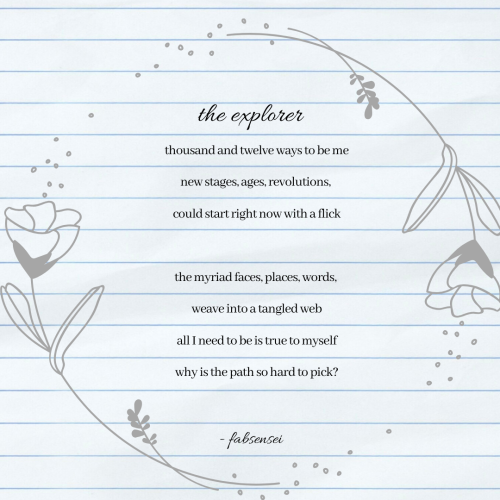 the explorer
thousand and twelve ways to be me
new stages, ages, revolutions,
could start right now with a flick
the myriad faces, places, words,
weave into a tangled web
all I need to be is true to myself
why is the path so hard to pick?
- fabsensei